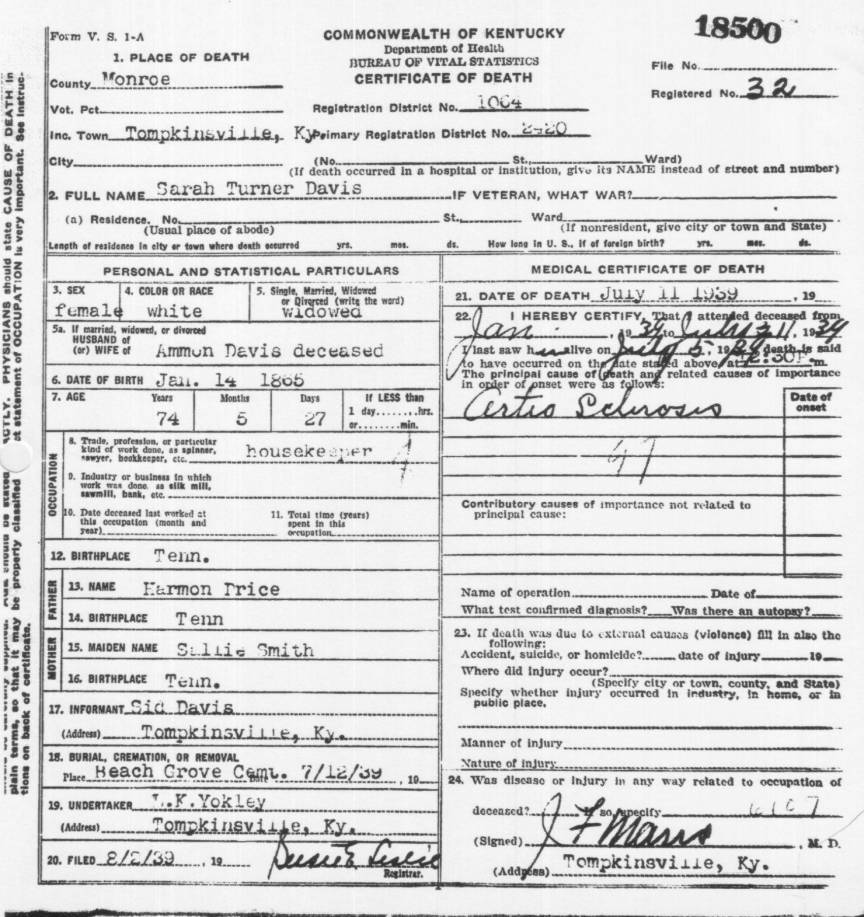 18500
Form V. S. 1-A
COMMONWEALTH OF KENTUCKY
Department of Health
BUREAU OF VITAL STATISTICS
CERTIFICATE OF DEATH
File No.
Registered No. 32
1. PLACE OF DEATH
County Monroe
Vot. Pct.
Registration District No. 1064
Inc. Town Tompkinsville, Ky. Primary Registration District No. 2420
City (No. St., Ward)
(If death occurred in a hospital or institution, give its NAME instead of street and number)
2. FULL NAME Sarah Turner Davis IF VETERAN, WHAT WAR?
(a) Residence. No. St., Ward
(Usual place of abode) (If nonresident, give city or town and State)
Length of residence in city or town where death occurred yrs. mos. ds. How long in U. S., if of foreign birth? yrs. mos. ds.
PERSONAL AND STATISTICAL PARTICULARS
3. SEX
female
4. COLOR OR RACE
white
5. Single, Married, Widowed
or Divorced (write the word)
widowed
5a. If married, widowed, or divorced
HUSBAND of
(or) WIFE of Ammon Davis deceased
6. DATE OF BIRTH Jan. 14 1865
7. AGE Years Months Days If LESS than
1 day........hrs.
or........min.
74 5 27
OCCUPATION
8. Trade, profession, or particular
kind of work done, as spinner,
sawyer, bookkeeper, etc. housekeeper
9. Industry or business in which
work was done, as silk mill,
sawmill, bank, etc.
10. Date deceased last worked at
this occupation (month and
year)
11. Total time (years)
spent in this
occupation
12. BIRTHPLACE Tenn.
FATHER
13. NAME Harmon Price
14. BIRTHPLACE Tenn
MOTHER
15. MAIDEN NAME Sallie Smith
16. BIRTHPLACE Tenn.
17. INFORMANT Sid Davis
(Address) Tompkinsville, Ky.
18. BURIAL, CREMATION, OR REMOVAL
Place Beach Grove Cemt. Date 7/12/39, 19
19. UNDERTAKER L.K.Yokley
(Address) Tompkinsville, Ky.
20. FILED 8/2/39, 19
Leslie
Registrar.
MEDICAL CERTIFICATE OF DEATH
21. DATE OF DEATH July 11 1939, 19
22. I HEREBY CERTIFY, That I attended deceased from
Jan., 1939 to July 11, 1939
I last saw h alive on July 5, 1939 death is said
to have occurred on the date stated above, at 12:30P.m.
The principal cause of death and related causes of importance
in order of onset were as follows:
Date of
onset
Artio Sclerosis
97
Contributory causes of importance not related to
principal cause:
Name of operation Date of
What test confirmed diagnosis? Was there an autopsy?
23. If death was due to external causes (violence) fill in also the
following:
Accident, suicide, or homicide? date of injury 19
Where did injury occur?
(Specify city or town, county, and State)
Specify whether injury occurred in industry, in home, or in
public place.
Manner of injury
Nature of injury
24. Was disease or injury in any way related to occupation of
deceased? If so, specify
(Signed) M. D.
(Address) Tompkinsville, Ky.
PHYSICIANS should state CAUSE OF DEATH in
statement of OCCUPATION is very important. See instruc-
plain terms, so that it may be properly classified
tions on back of certificate.